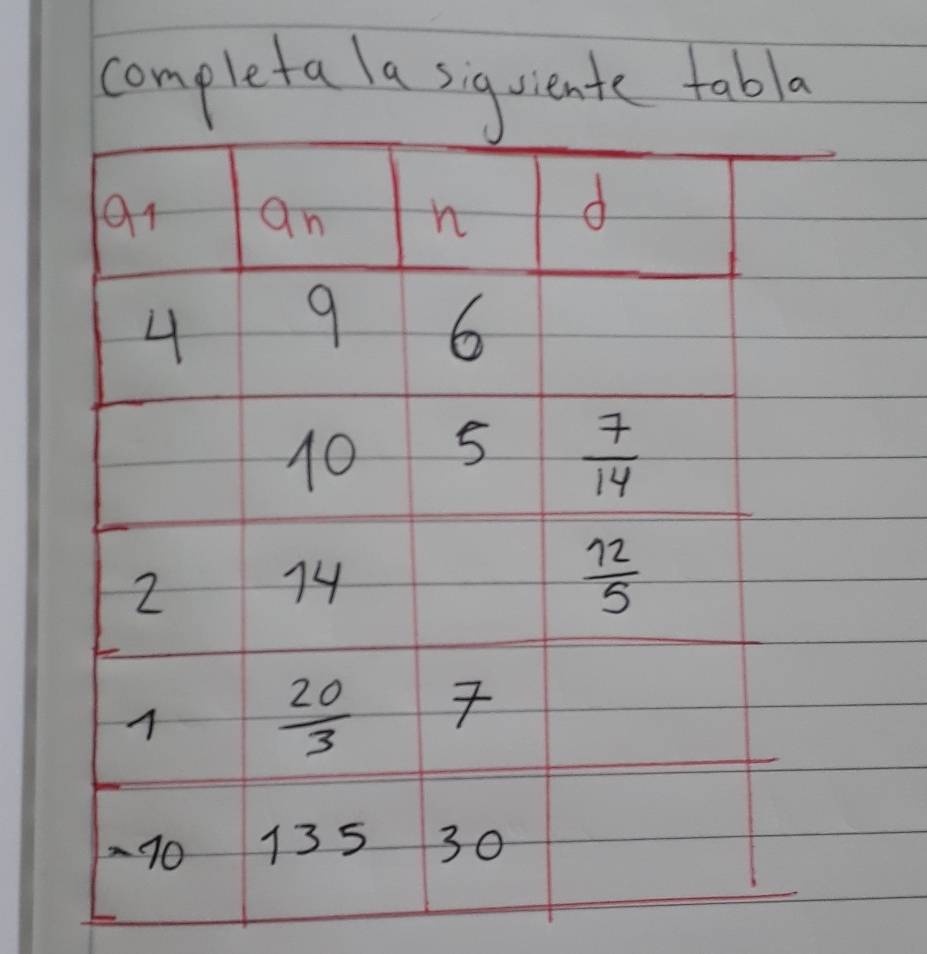 completa la siguiente tabla
a1 an n d
4 9 6
10 5 7/14
2 14 12/5
1 20/3 7
-10 135 30